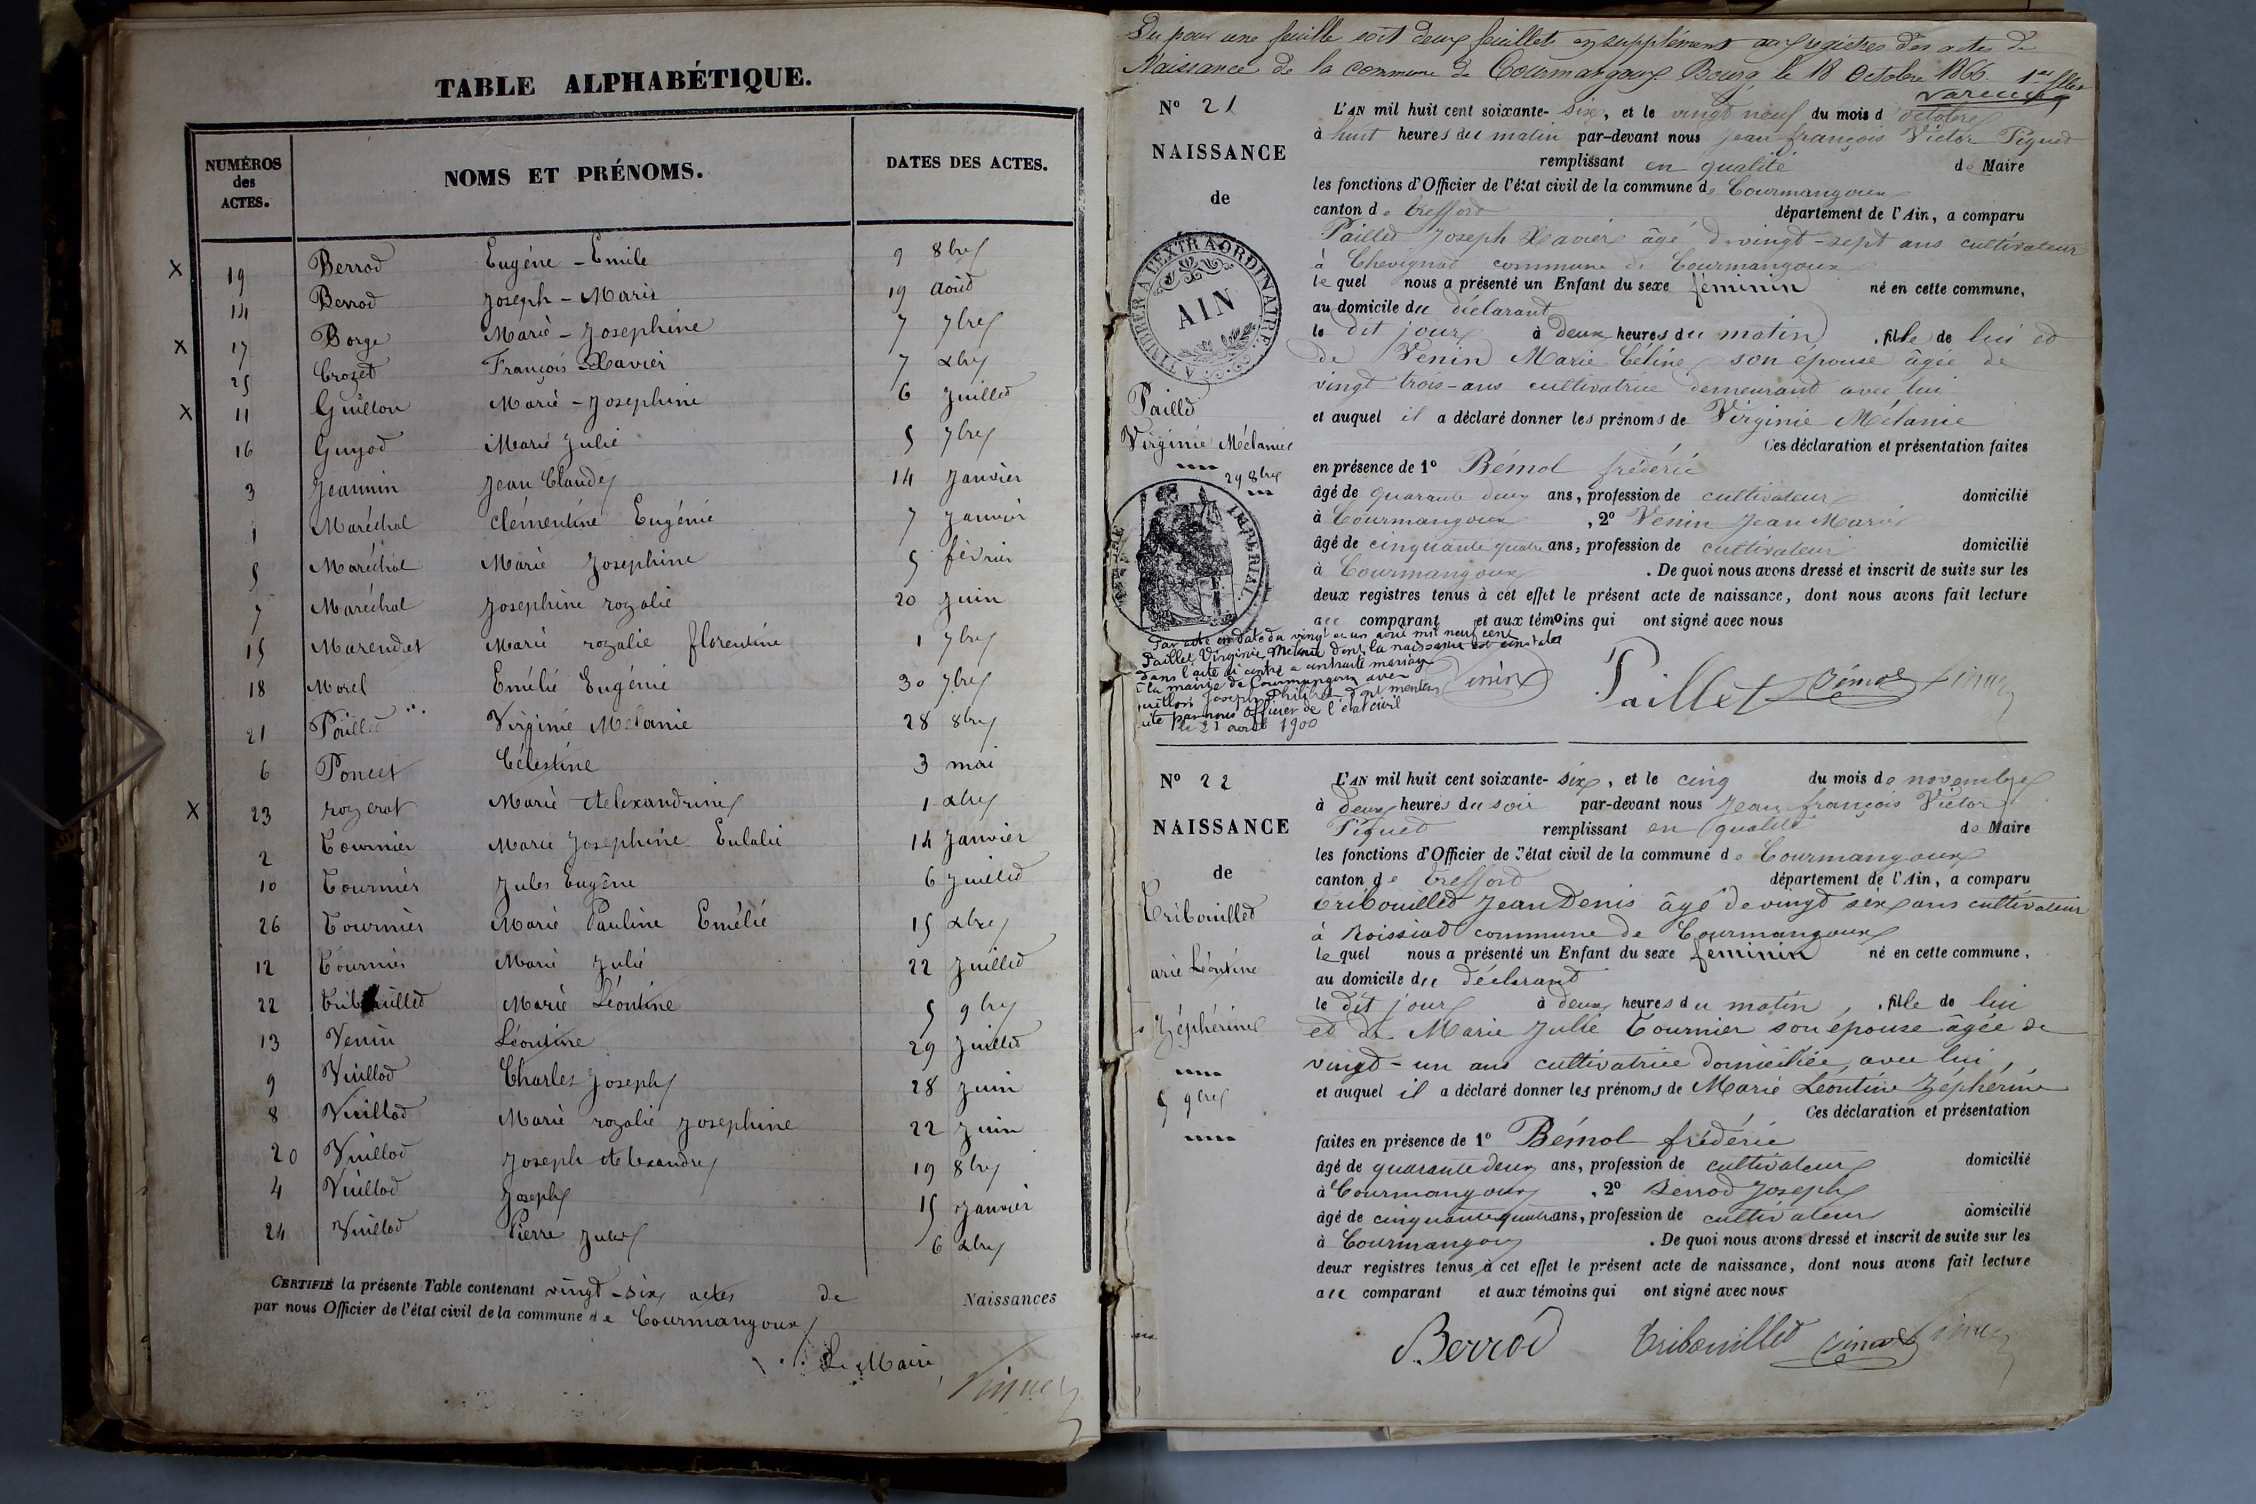 TABLE ALPHABÉTIQUE.
NUMÉROS des ACTES. NOMS ET PRÉNOMS. DATES DES ACTES.
x 19 Berrod Eugéne - Emile 9 8bre
14 Berrod Joseph - Marie 19 août
x 17 Borge Marie - Josephine 7 7bre
25 Crozet François Xavier 7 xbre
x 11 Guillon Marie - Josephine 6 Juillet
16 Guyod Marie Julie 5 7bre
3 Jeannin Jean Claude 14 Janvier
1 Maréchal Clémentine Eugénie 7 Janvier
5 Maréchal Marie Josephine 5 février
7 Maréchal Josephine rozalie 20 Juin
15 Marendet Marie rozalie florentine 1 7bre
18 Morel Emélie Eugénie 30 7bre
21 Paillet Virginie Mélanie 28 8bre
6 Poncet Célestine 3 mai
x 23 rozerat Marie Alexandrine 1 xbre
2 Tournier Marie Josephine Eulalie 14 Janvier
10 Tournier Jules Eugène 6 Juillet
26 Tournier Marie Pauline Emélie 15 xbre
12 Tournier Marie Julie 22 Juillet
22 Tribouillet Marie Léontine 5 9bre
13 Venin Léontine 29 Juillet
9 Vuillod Charles Joseph 28 Juin
8 Vuillod Marie rozalie Josephine 22 Juin
20 Vuillod Joseph Alexandre 19 8bre
4 Vuillod Joseph 15 Janvier
24 Vuillod Pierre Jules 6 xbre
CERTIFIÉ la présente Table contenant vingt-six actes de Naissances
par nous Officier de l'état civil de la commune de Courmangoux
Le Maire,
Piquet
Vu pour une feuille soit deux feuillets en supplément aux registres des actes de
Naissance de la commune de Courmangoux Bourg le 18 Octobre 1866.
N° 21
NAISSANCE
de
Paillet
Virginie Mélanie
29 8bre
A TIMBRER A L'EXTRAORDINAIRE
AIN
TIMBRE IMPERIAL
L'AN mil huit cent soixante-six, et le vingt neuf du mois d'octobre
à huit heures du matin par-devant nous Jean françois Victor Piquet
remplissant en qualité de Maire
les fonctions d'Officier de l'état civil de la commune de Courmangoux
canton de Treffort département de l'Ain, a comparu
Paillet Joseph Xavier âgé de vingt-sept ans cultivateur
à Chevignat commune de Courmangoux
lequel nous a présenté un Enfant du sexe féminin né en cette commune,
au domicile du déclarant
le dit jour à deux heures du matin, fille de lui et
de Venin Marie Céline son épouse âgée de
vingt trois-ans cultivatrice demeurant avec lui
et auquel il a déclaré donner les prénoms de Virginie Mélanie
Ces déclaration et présentation faites
en présence de 1° Bémol frédéric
âgé de quarante deux ans, profession de cultivateur domicilié
à Courmangoux, 2° Venin Jean Marie
âgé de cinquante quatre ans, profession de cultivateur domicilié
à Courmangoux. De quoi nous avons dressé et inscrit de suite sur les
deux registres tenus à cet effet le présent acte de naissance, dont nous avons fait lecture
au comparant et aux témoins qui ont signé avec nous
Par acte en date du vingt et un août mil neuf cent
Paillet Virginie Mélanie dont la naissance est constatée
dans l'acte ci contre a contracté mariage
à la mairie de Courmangoux avec
Guillon Joseph Philibert dont mention
faite par nous officier de l'état civil
le 21 août 1900
Venin Paillet Bémol Piquet
N° 22
NAISSANCE
de
Tribouillet
arie Léontine
Zéphérine
5 9bre
L'AN mil huit cent soixante-six, et le cinq du mois de novembre
à deux heures du soir par-devant nous Jean françois Victor
Piquet remplissant en qualité de Maire
les fonctions d'Officier de l'état civil de la commune de Courmangoux
canton de Treffort département de l'Ain, a comparu
Tribouillet Jean Denis âgé de vingt six ans cultivateur
à Roissiat commune de Courmangoux
lequel nous a présenté un Enfant du sexe féminin né en cette commune,
au domicile du déclarant
le dit jour à deux heures du matin, fille de lui
et de Marie Julie Tournier son épouse âgée de
vingt-un ans cultivatrice domiciliée avec lui,
et auquel il a déclaré donner les prénoms de Marie Léontine Zéphérine
Ces déclaration et présentation
faites en présence de 1° Bémol frédéric
âgé de quarante deux ans, profession de cultivateur domicilié
à Courmangoux, 2° Berrod Joseph
âgé de cinquante quatre ans, profession de cultivateur domicilié
à Courmangoux. De quoi nous avons dressé et inscrit de suite sur les
deux registres tenus à cet effet le présent acte de naissance, dont nous avons fait lecture
au comparant et aux témoins qui ont signé avec nous
Berrod Tribouillet Bémol Piquet